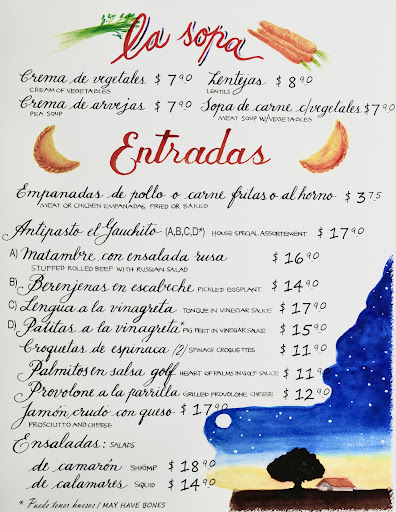 la sopa
Crema de vegetales $ 7⁹⁰ Lentejas $ 8⁹⁰
CREAM OF VEGETABLES LENTILS
Crema de arvejas $ 7⁹⁰ Sopa de carne c/vegetales $ 7⁹⁰
PEA SOUP MEAT SOUP W/VEGETABLES
Entradas
Empanadas de pollo o carne fritas o al horno $ 3⁷⁵
MEAT OR CHICKEN EMPANADAS, FRIED OR BAKED
Antipasto el Gauchito (A,B,C,D*) HOUSE SPECIAL ASSORTEMENT $ 17⁹⁰
A) Matambre con ensalada rusa $ 16⁹⁰
STUFFED ROLLED BEEF WITH RUSSIAN SALAD
B) Berenjenas en escabeche PICKLED EGGPLANT $ 14⁹⁰
C) Lengua a la vinagreta TONGUE IN VINEGAR SAUCE $ 17⁹⁰
D) Patitas a la vinagreta* PIG FEET IN VINEGAR SAUCE $ 15⁹⁰
Croquetas de espinaca (2) SPINAGE CROQUETTES $ 11⁹⁰
Palmitos en salsa golf HEART OF PALMS IN GOLF SAUCE $ 11⁹⁰
Provolone a la parrilla GRILLED PROVOLONE CHEESE $ 12⁹⁰
Jamón crudo con queso $ 17⁹⁰
PROSCIUTTO AND CHEESE
Ensaladas: SALADS
de camarón SHRIMP $ 18⁹⁰
de calamares SQUID $ 14⁹⁰
* Puede tener huesos / MAY HAVE BONES